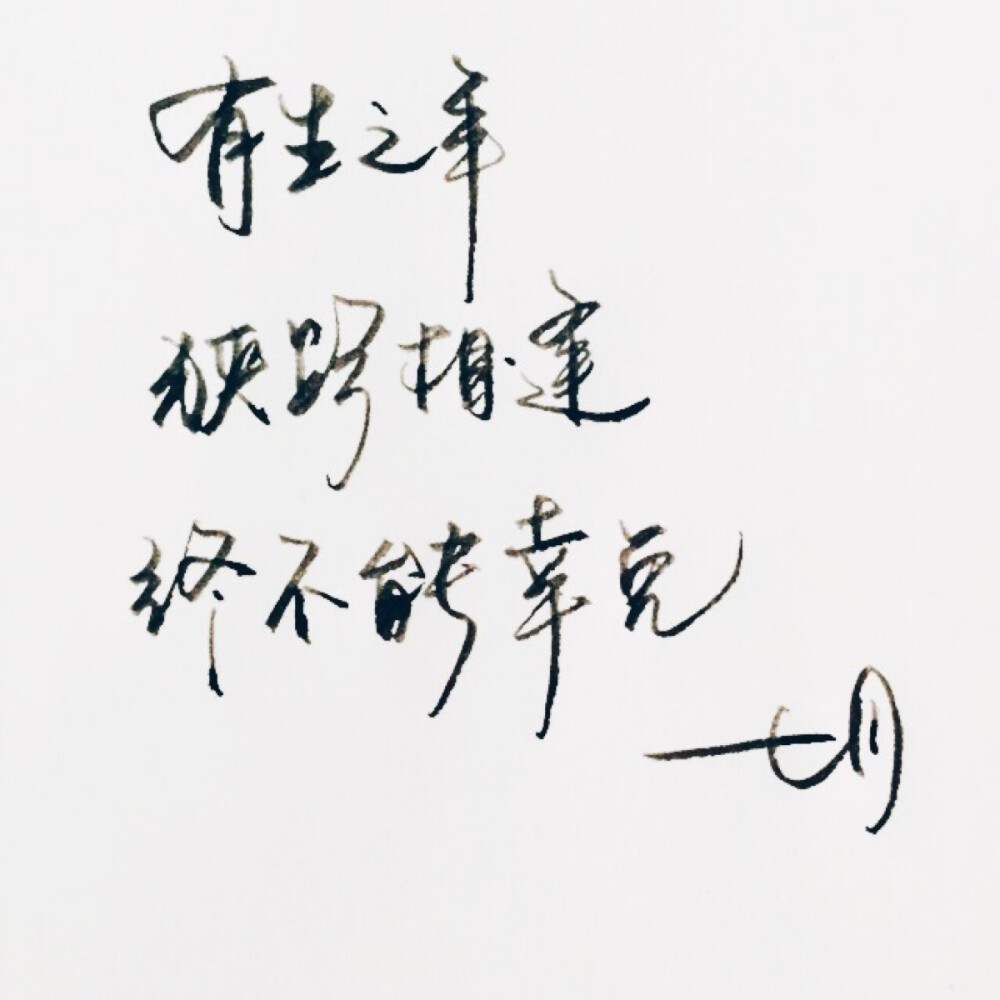 有生之年
狭路相逢
终不能幸免
七月